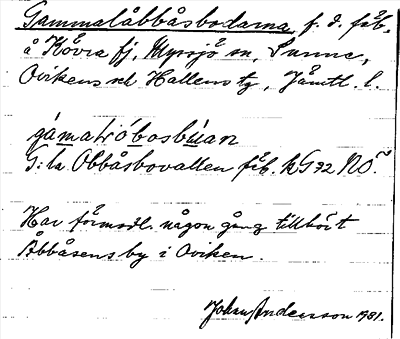 Gammalåbbåsbodarna, f. d. fäb.
å Kövra fj, Myssjö sn, Sunne,
Ovikens och Hallens tg, Jämtl. l.
G:la Obbåsbovallen fäb. kG32 NÖ.
Har förmodl. någon gång tillhört
Åbbåsens by i Oviken.
Johan Andersson 1981.